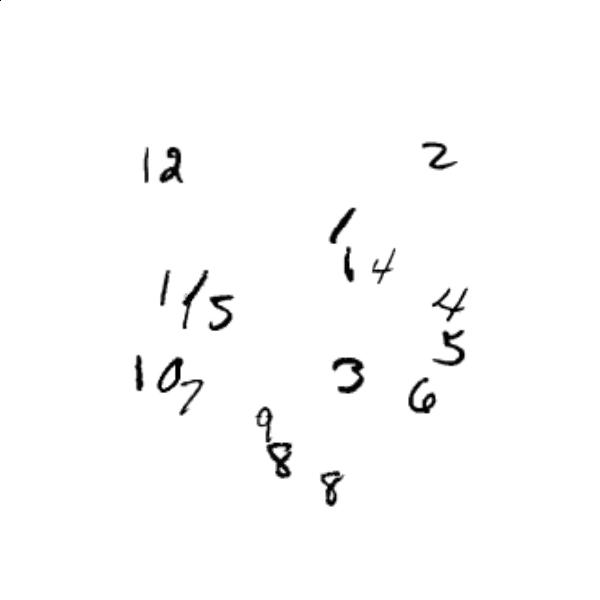 12 2
1
1 4
1 15 4
5
10 7 3 6
9
8
8